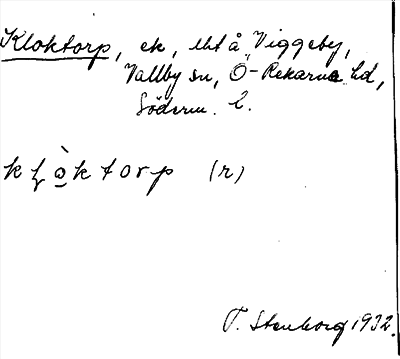 Kloktorp, ek, utå Viggeby,
Vallby sn, Ö-Rekarne hd,
Söderm. l.
k ḷ ò̱ k t o r p (r)
T. Stenborg 1932.